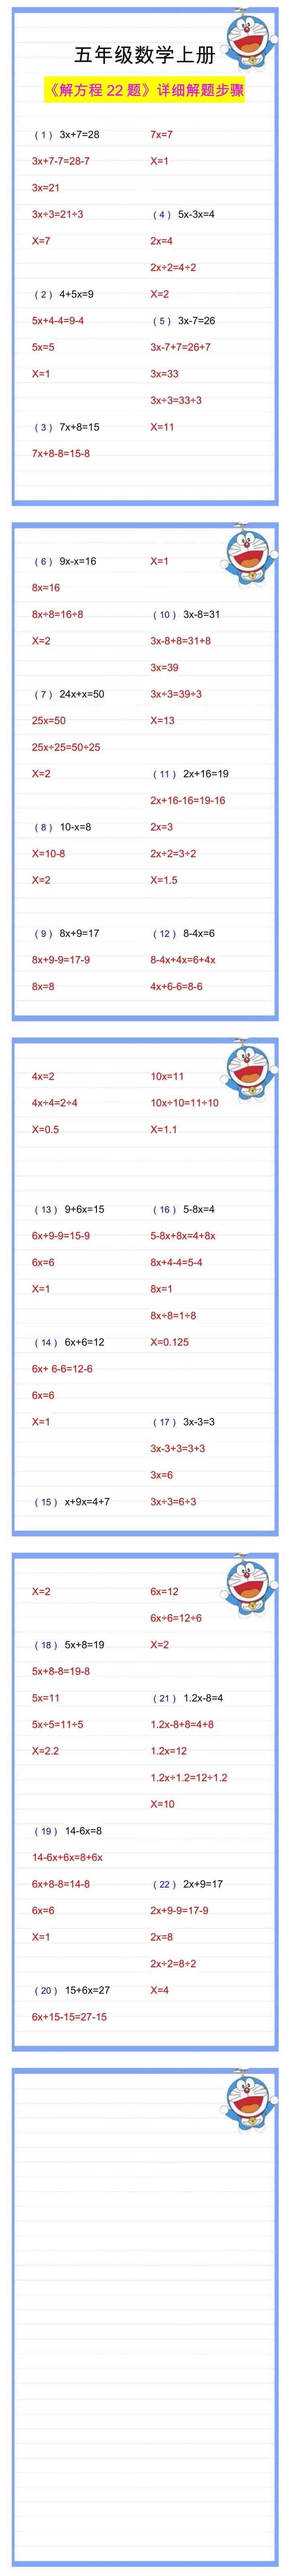 五年级数学上册
《解方程 22 题》详细解题步骤
（1） 3x+7=28
3x+7-7=28-7
3x=21
3x÷3=21÷3
X=7
（2） 4+5x=9
5x+4-4=9-4
5x=5
X=1
（3） 7x+8=15
7x+8-8=15-8
7x=7
X=1
（4） 5x-3x=4
2x=4
2x÷2=4÷2
X=2
（5） 3x-7=26
3x-7+7=26+7
3x=33
3x÷3=33÷3
X=11
（6） 9x-x=16
8x=16
8x÷8=16÷8
X=2
（7） 24x+x=50
25x=50
25x÷25=50÷25
X=2
（8） 10-x=8
X=10-8
X=2
（9） 8x+9=17
8x+9-9=17-9
8x=8
X=1
（10） 3x-8=31
3x-8+8=31+8
3x=39
3x÷3=39÷3
X=13
（11） 2x+16=19
2x+16-16=19-16
2x=3
2x÷2=3÷2
X=1.5
（12） 8-4x=6
8-4x+4x=6+4x
4x+6-6=8-6
4x=2
4x÷4=2÷4
X=0.5
（13） 9+6x=15
6x+9-9=15-9
6x=6
X=1
（14） 6x+6=12
6x+ 6-6=12-6
6x=6
X=1
（15） x+9x=4+7
10x=11
10x÷10=11÷10
X=1.1
（16） 5-8x=4
5-8x+8x=4+8x
8x+4-4=5-4
8x=1
8x÷8=1÷8
X=0.125
（17） 3x-3=3
3x-3+3=3+3
3x=6
3x÷3=6÷3
X=2
（18） 5x+8=19
5x+8-8=19-8
5x=11
5x÷5=11÷5
X=2.2
（19） 14-6x=8
14-6x+6x=8+6x
6x+8-8=14-8
6x=6
X=1
（20） 15+6x=27
6x+15-15=27-15
6x=12
6x÷6=12÷6
X=2
（21） 1.2x-8=4
1.2x-8+8=4+8
1.2x=12
1.2x÷1.2=12÷1.2
X=10
（22） 2x+9=17
2x+9-9=17-9
2x=8
2x÷2=8÷2
X=4